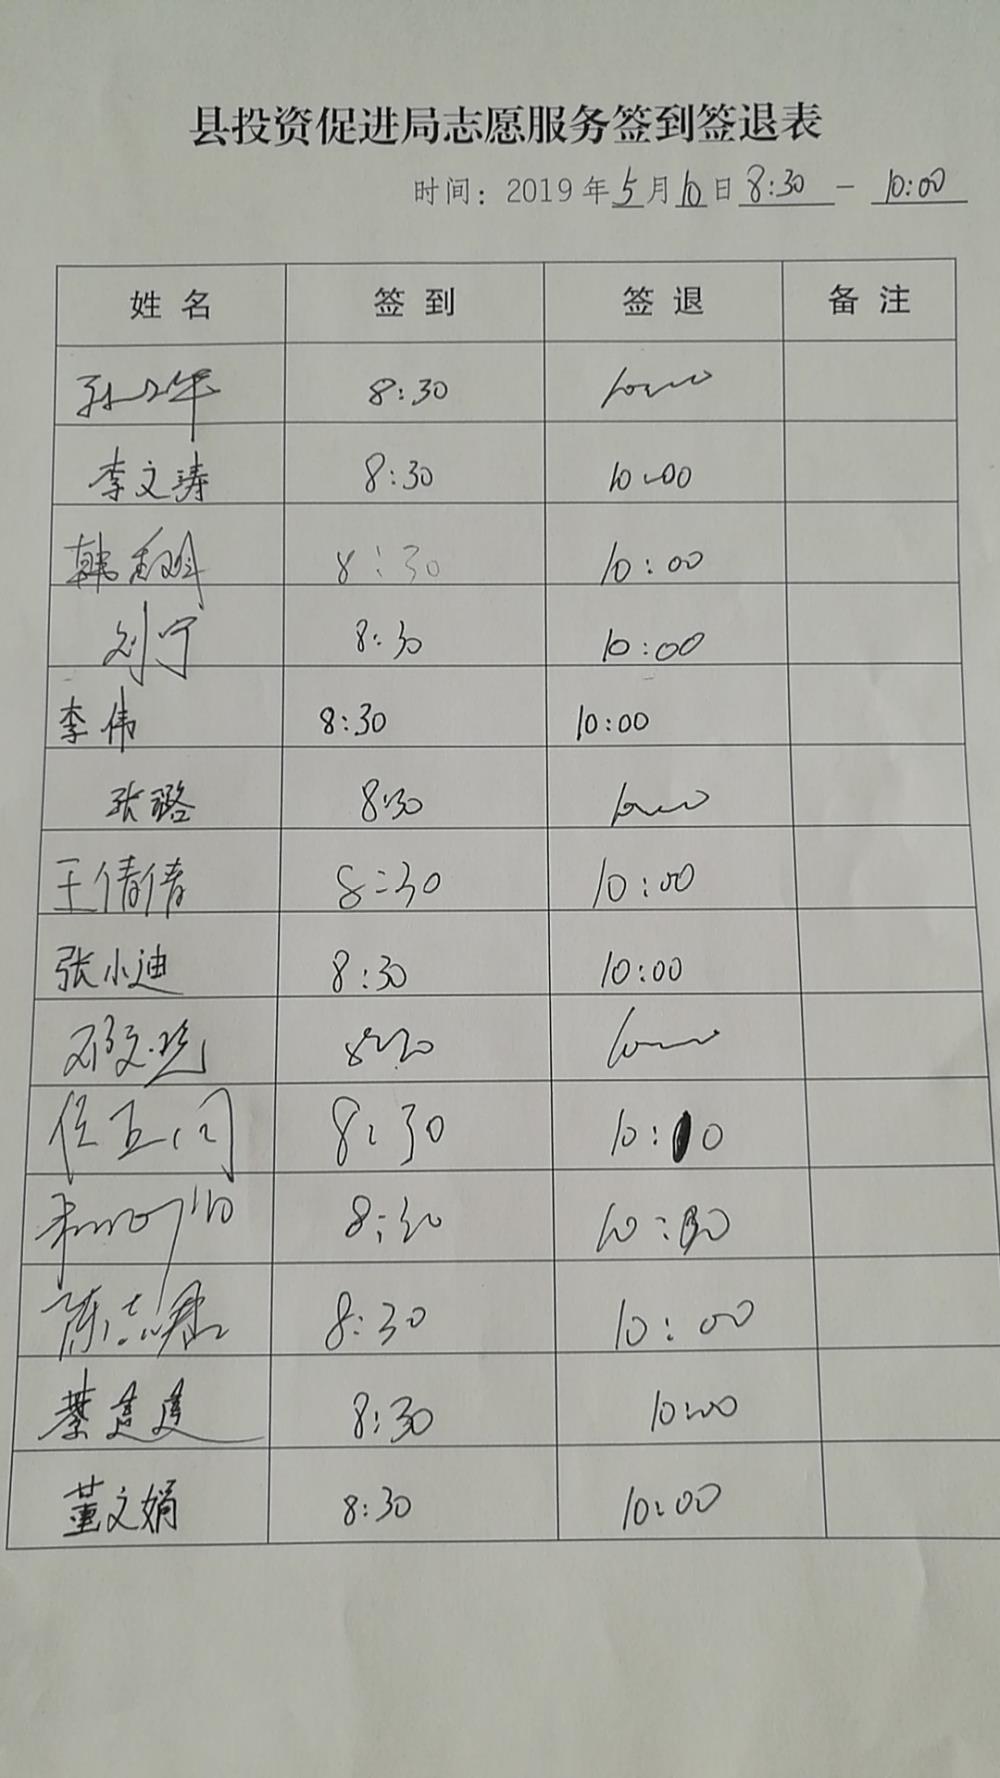 县投资促进局志愿服务签到签退表
时间：2019年5月10日8:30－10:00
姓名 签到 签退 备注
8:30
李文涛 8:30 10:00
韩 8:30 10:00
刘宁 8:30 10:00
李伟 8:30 10:00
张璐 8:30
王倩倩 8:30 10:00
张小迪 8:30 10:00
8:30
8:30 10:
8:30 10:
陈志君 8:30 10:00
蔡 8:30 10:00
董文娟 8:30 10:00